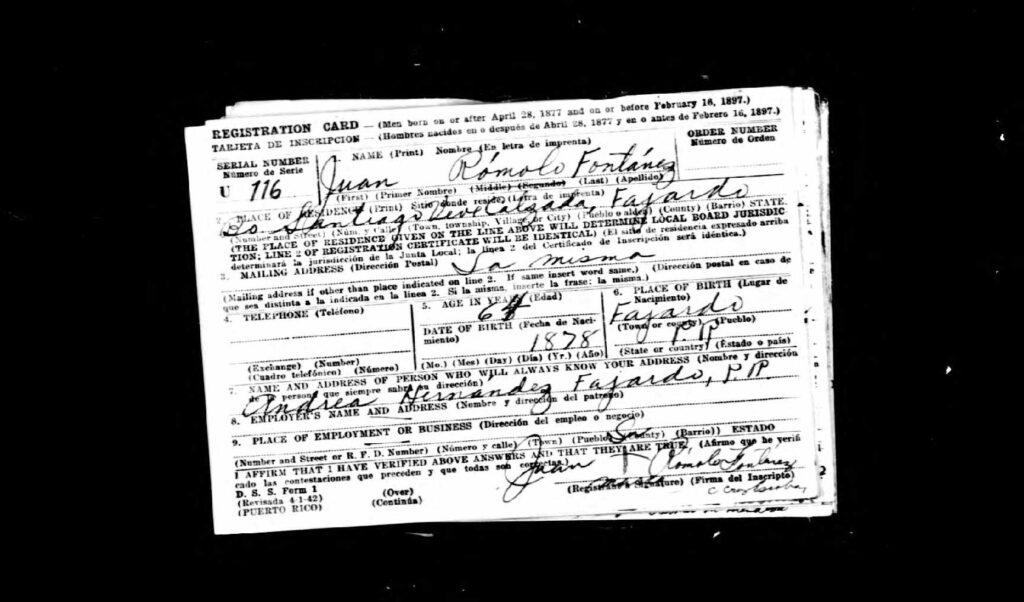 REGISTRATION CARD — (Men born on or after April 28, 1877 and on or before February 16, 1897.)
TARJETA DE INSCRIPCION — (Hombres nacidos en o después de Abril 28, 1877 y en o antes de Febrero 16, 1897.)
SERIAL NUMBER NAME (Print) Nombre (En letra de imprenta) ORDER NUMBER
Número de Serie Número de Orden
U 116 Juan Rómolo Fontánez
(First) (Primer Nombre) (Middle) (Segundo) (Last) (Apellido)
2. PLACE OF RESIDENCE (Print) Sitio donde reside (Letra de imprenta)
Bo. Santiago Calzada, Fajardo
(Number and Street) (Núm. y Calle) (Town, township, Village, or City) (Pueblo o aldea) (County) (Barrio) STATE
(THE PLACE OF RESIDENCE GIVEN ON THE LINE ABOVE WILL DETERMINE LOCAL BOARD JURISDIC
TION; LINE 2 OF REGISTRATION CERTIFICATE WILL BE IDENTICAL) (El sitio de residencia expresado arriba
determinará la jurisdicción de la Junta Local; la línea 2 del Certificado de Inscripción será idéntica.)
3. MAILING ADDRESS (Dirección Postal) La misma
(Mailing address if other than place indicated on line 2. If same insert word same.) (Dirección postal en caso de
que sea distinta a la indicada en la línea 2. Si la misma, inserte la frase: la misma.)
4. TELEPHONE (Teléfono) 5. AGE IN YEARS (Edad) 6. PLACE OF BIRTH (Lugar de
Nacimiento)
64 Fajardo
DATE OF BIRTH (Fecha de Naci- (Town or county) (Pueblo)
miento) 1878 P.R.
(Exchange) (Number) (Mo.) (Mes) (Day) (Día) (Yr.) (Año) (State or country) (Estado o país)
(Cuadro telefónico) (Número)
7. NAME AND ADDRESS OF PERSON WHO WILL ALWAYS KNOW YOUR ADDRESS (Nombre y dirección
de persona que siempre sabrá su dirección)
Andrea Hernandez Fajardo, P.R.
8. EMPLOYER'S NAME AND ADDRESS (Nombre y dirección del patrono)
9. PLACE OF EMPLOYMENT OR BUSINESS (Dirección del empleo o negocio)
(Number and Street or R. F. D. Number) (Número y calle) (Town) (Pueblo) (County) (Barrio) ESTADO
I AFFIRM THAT I HAVE VERIFIED ABOVE ANSWERS AND THAT THEY ARE TRUE. (Afirmo que he verifi
cado las contestaciones que preceden y que todas son correctas)
Juan Su + Rómolo Fontánez
marca
D. S. S. Form 1 (Over) (Registrant's Signature) (Firma del Inscripto)
(Revisada 4-1-42) (Continúa)
(PUERTO RICO)